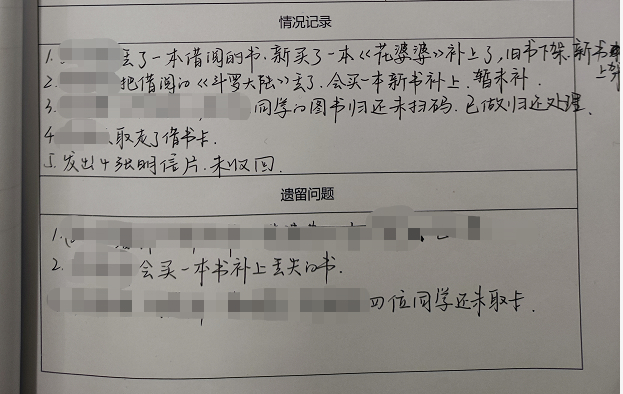 情况记录
1. 丢了一本借阅的书.新买了一本《花婆婆》补上了,旧书下架.新书上架
2. 把借阅的《斗罗大陆》丢了.会买一本新书补上.暂未补.
3. 同学的图书归还未扫码.已做归还处理.
4 取走了借书卡.
5.发出4张明信片.未收回.
遗留问题
1.
2. 会买一本书补上丢失的书.
四位同学还未取卡.